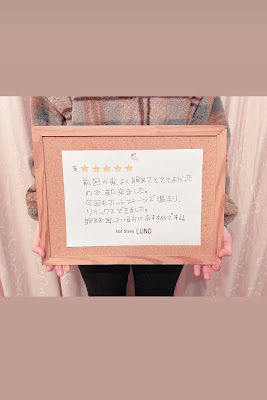 5 ★★★★★
前回の夜、よく眠れてとてもよかった
ので、また来ました。
今回もホットストーンで温まり、
リラックスできました。
眠れず困っている方におすすめです!!
Hot Stone LUNO